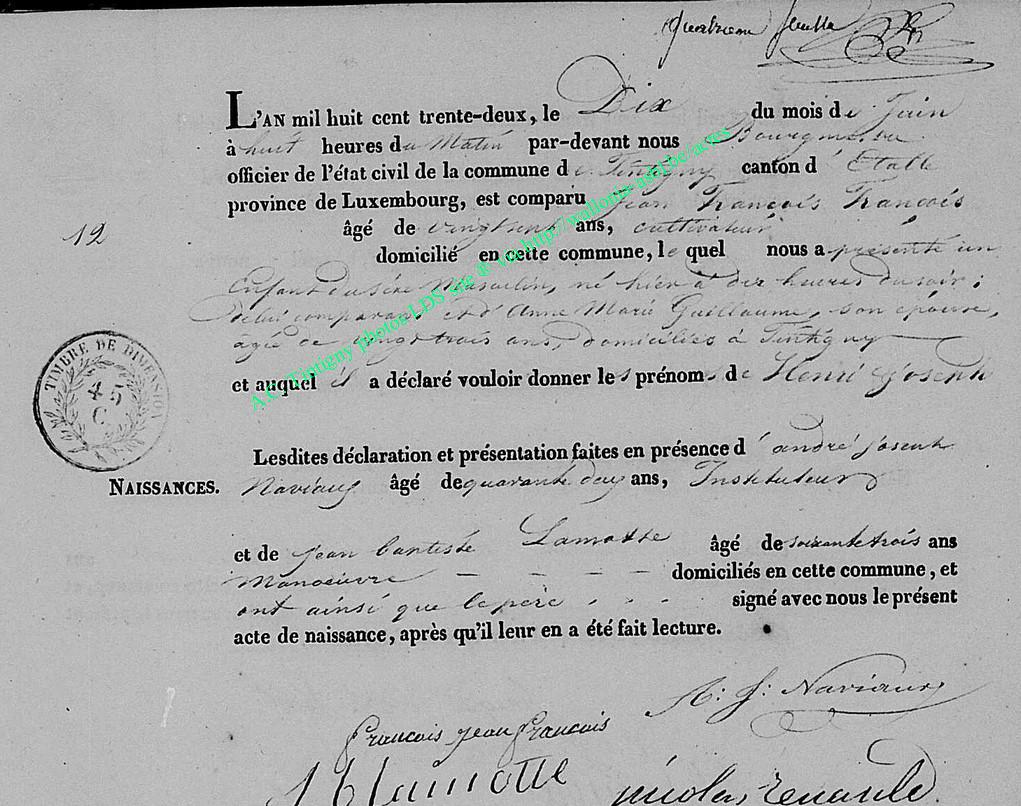 quatrieme feuille
L'AN mil huit cent trente-deux, le Dix du mois de Juin
à huit heures du Matin par-devant nous Bourgmestre
officier de l'état civil de la commune de Tintigny canton d'Etalle
province de Luxembourg, est comparu Jean François François
12
âgé de ans, cultivateur
domicilié en cette commune, lequel nous a présenté un
Enfant du sexe Masculin, né hier à dix heures du soir ;
delui comparant et d'Anne Marie Guillaume, son épouse,
agée de vingt trois ans, domiciliés à Tintigny
et auquel il a déclaré vouloir donner les prénoms de Henri Joseph
TIMBRE DE DIMENSION
45
C.
Lesdites déclaration et présentation faites en présence d'andré joseph
NAISSANCES. Naviaux âgé de quarante deux ans, Instituteur
et de jean baptiste Lamotte âgé de soixante trois ans
Manoeuvre - - - - domiciliés en cette commune, et
ont ainsi que le père . . . signé avec nous le présent
acte de naissance, après qu'il leur en a été fait lecture.
A: J: Naviaux
françois jean françois
J B Lamotte
nicolas renauld
A.C. Tintigny photos LDS site ® via http://wallonia-asbl.be/actes